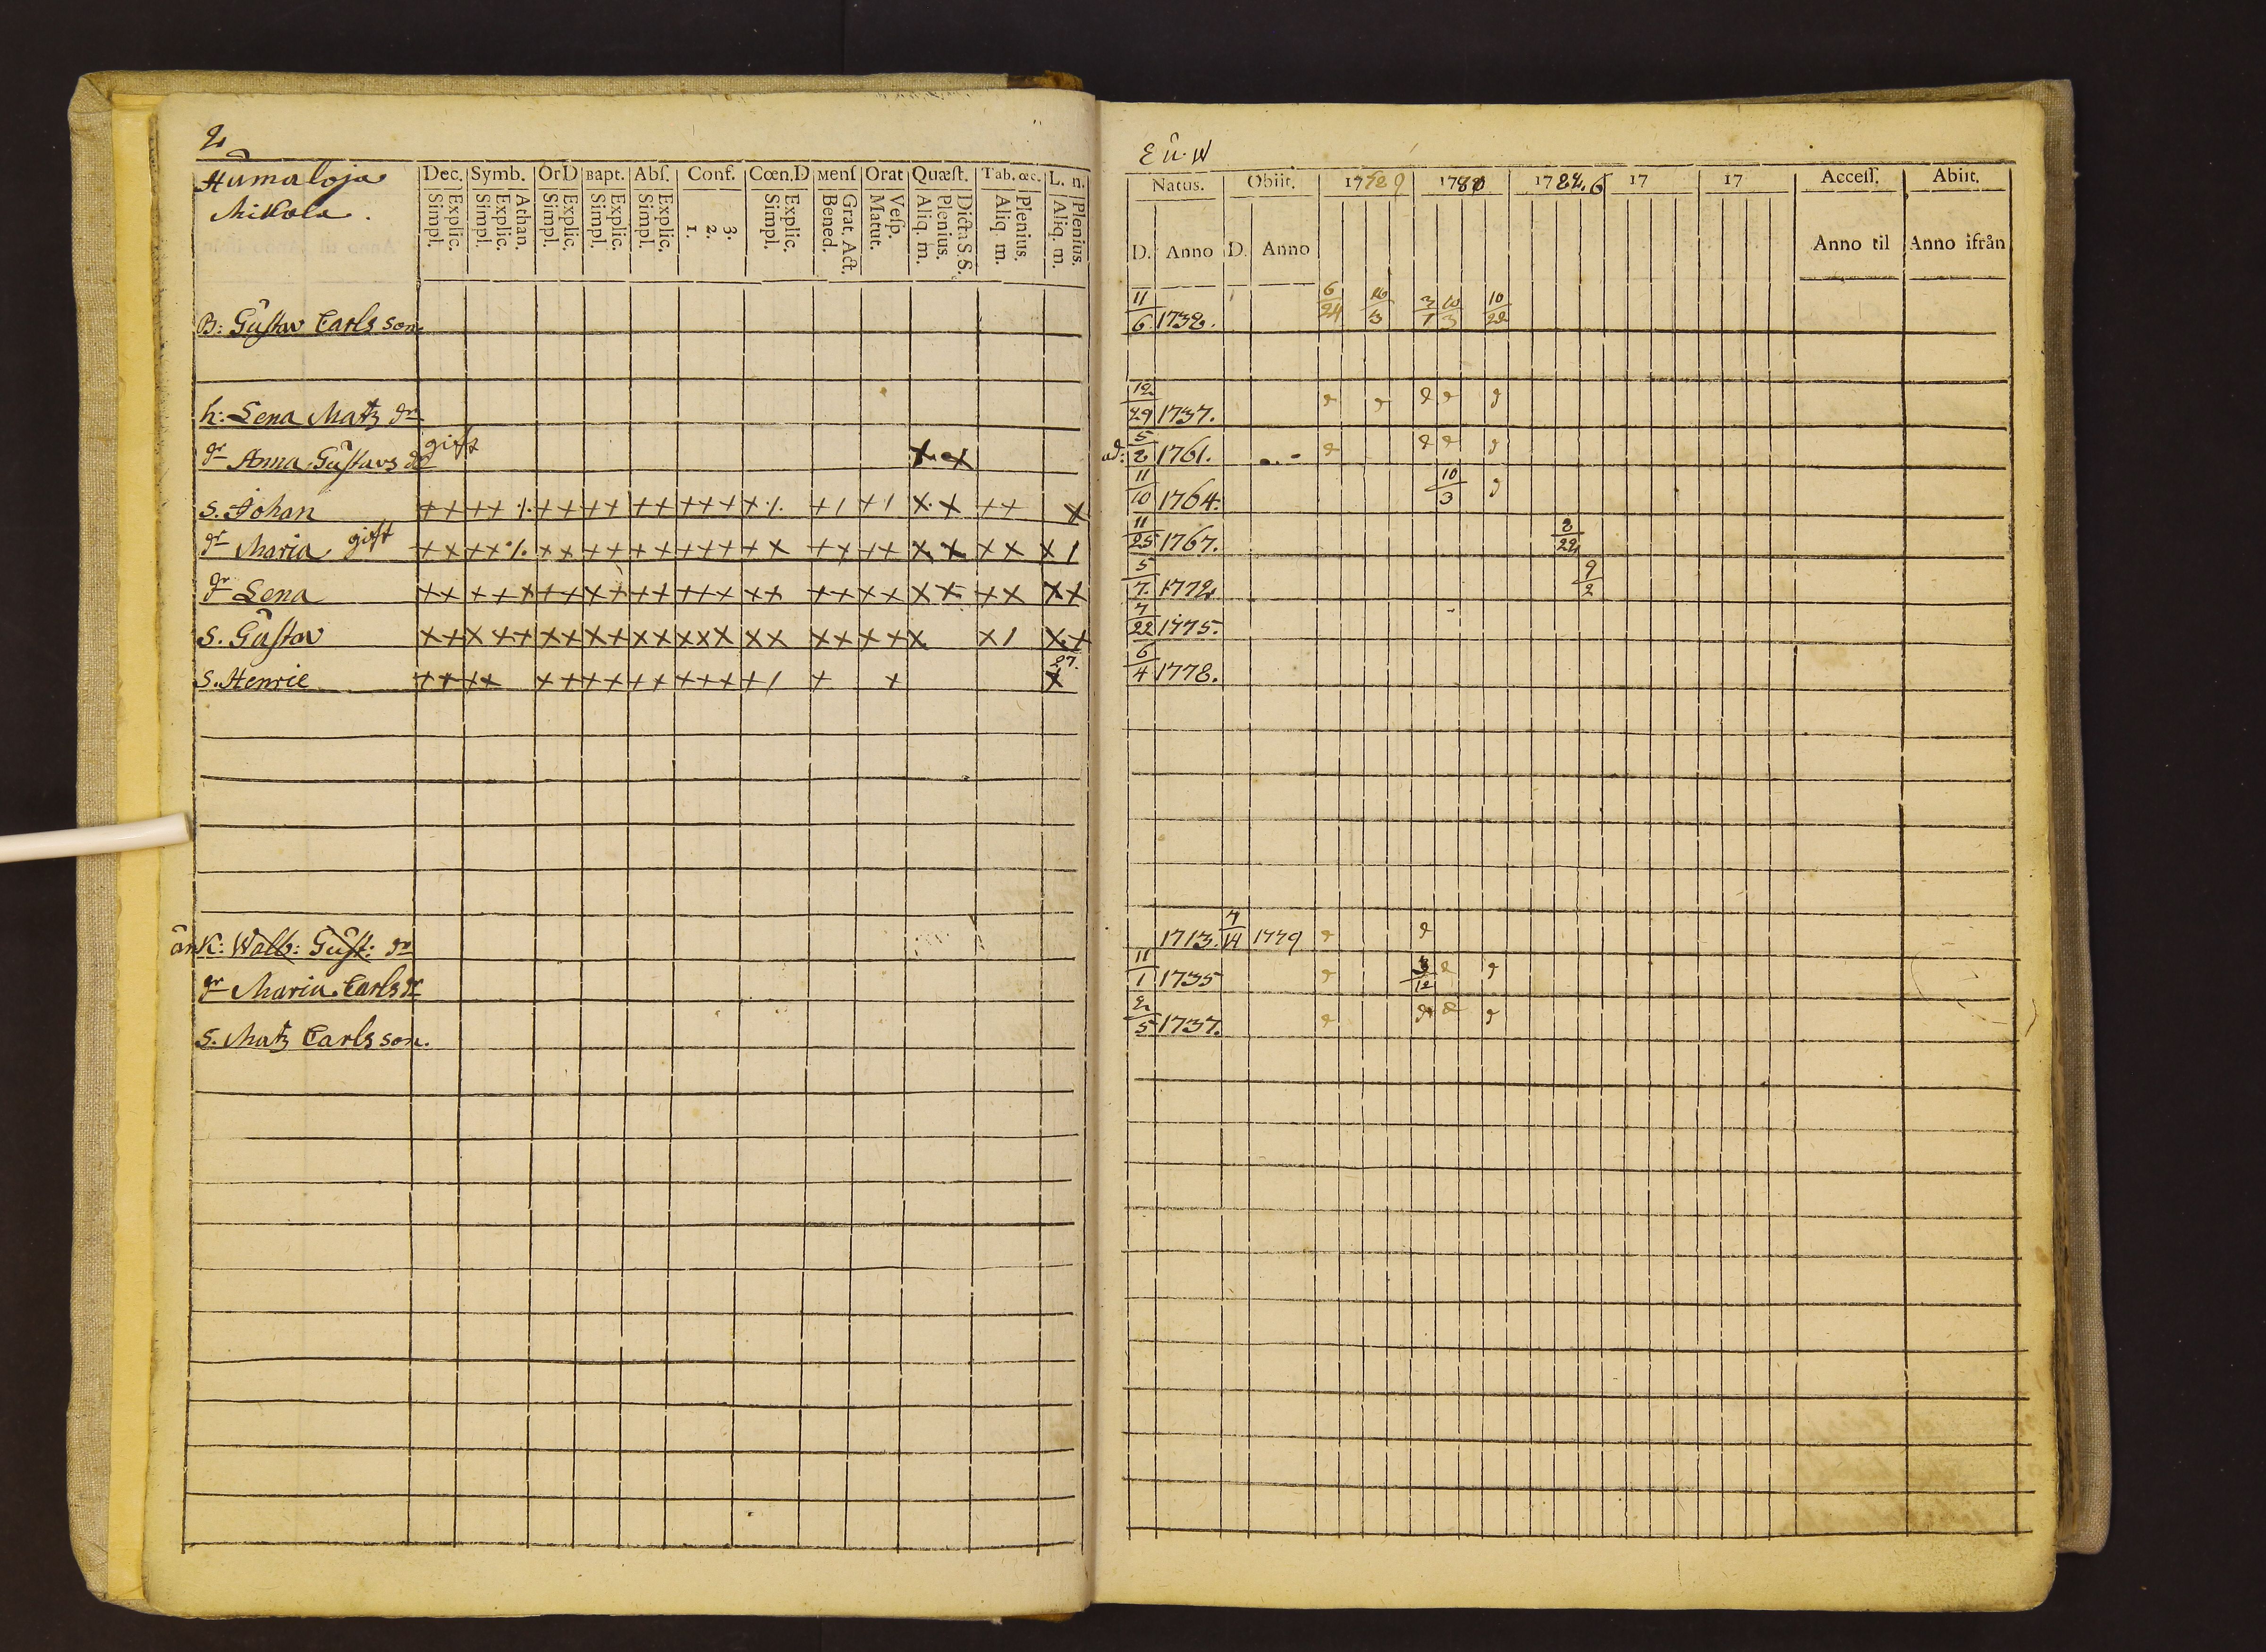 2
Humaloja
Mikola.
Dec. Symb. OrD Bapt. Abſ. Conf. Cœn.D Menſ Orat Quæſt. Tab. &c. L. n.
Explic. Simpl. Athan. Explic. Simpl. Explic. Simpl. Explic. Simpl. Explic. Simpl. 1. 2. 3. Explic. Simpl. Grat. Act. Bened. Veſp. Matut. Dicta S.S. Plenius. Aliq. m. Plenius. Aliq. m. Plenius. Aliq. m.
B: Gustav Carls son
h: Lena Matz dr
dr Anna Gustavs dr gift
S. Johan
dr Maria gift
dr Lena
S. Gustav
S. Henric 27.
änk: Walb: Gust: dr
dr Maria Carls dr
S. Matz Carls son.
Natus. Obiit. 17 1780 17 17 17 Acceſſ. Abiit.
D. Anno D. Anno Anno til Anno ifrån
11/6 1732. 6/24 10/3 10/22
12/29 1737.
5/2 1761.
11/10 1764. 10/3
11/25 1767. 2/22
5/7 1772 9/2
7/22 1775.
6/4 1778.
1713. 7/14 1779
11/1 1735 3/12
2/5 1737.